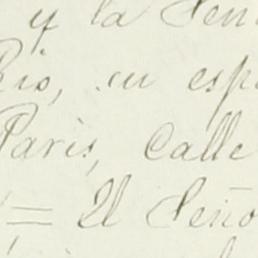 y la Seño
Rio, su espo
Paris, calle
= El Seño